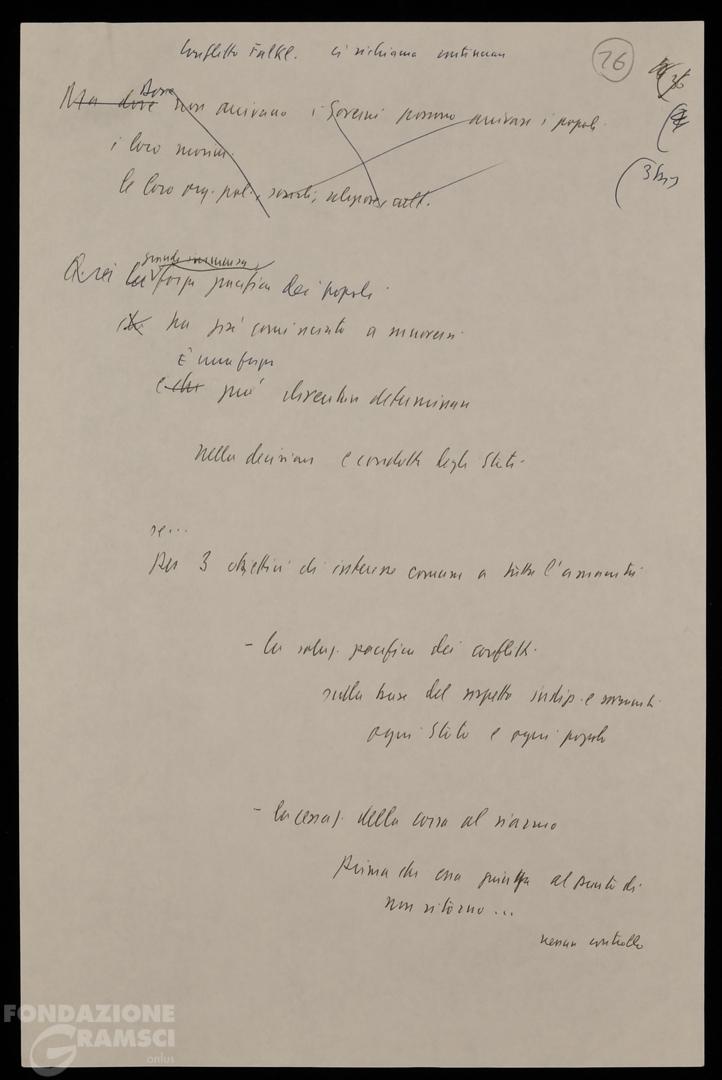 Conflitto Falkl. ci richiama
16
Dove
Ma dove non arrivano i Governi possono arrivare i popoli.
i loro movim.
le loro org. pol., sociali, religiose, cult.
(3 bis)
grande immensa
Qui la forza pacifica dei popoli
che ha già cominciato a muoversi
È una forza
e che può diventare determinante
nella decisione e condotta degli Stati.
se...
Per 3 obiettivi di interesse comune a tutta l'umanità
- la soluz. pacifica dei conflitti.
sulla base del rispetto indip. e sovranità
ogni Stato e ogni popolo
- la cessaz. della corsa al riarmo
prima che essa giunga al punto di
non ritorno...
nessun controllo
FONDAZIONE
GRAMSCI
onlus